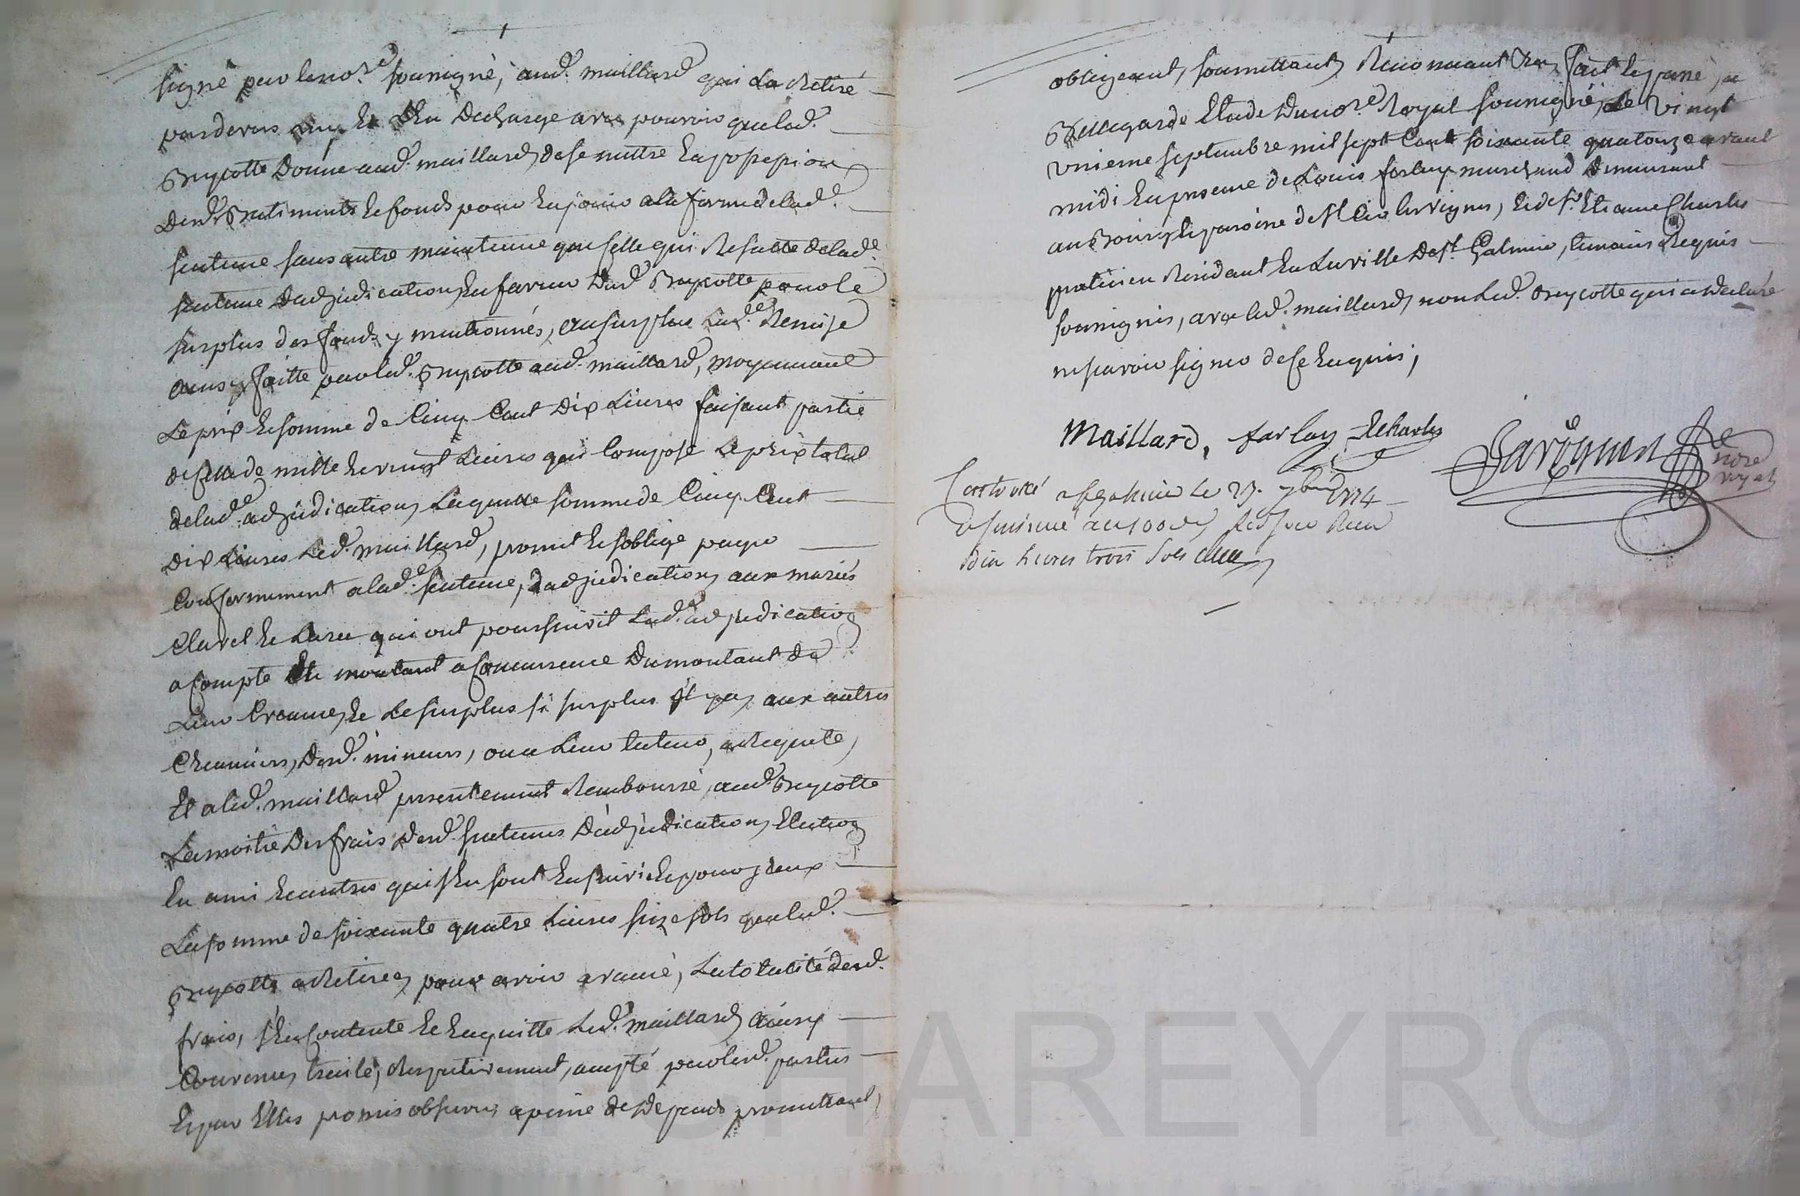 signé par le no.re soussigné, aud. maillard qui la Retiré
pardevers luy et En Decharge avec pouvoir que led.
Breycotte Donne aud. maillard, de se mettre En possession
Desd. Batiments Et fonds pour En jouir a la forme de lad.
sentence sans autre maintenue que selle qui Resulte de lad.e
sentence Dadjudication En faveur Dud. Breycotte pour le
surplus des fonds y mentionnés, au surplus Lad.e Remise
ainsy faitte par led. Breycotte aud. maillard, moyennant
Le prix Et somme de Cinq Cent Dix Livres faisant partie
de selle de mille Et vingt Livres qui Compose Le prix total
de lad.e adjudication, Laquelle somme de Cinq Cent
Dix Livres Led. maillard, promet Et soblige payer
Conformement a lad.e sentence, Dadjudication, aux mariés
Clavel Et qui ont poursuivit Lad.e adjudication
a Compte Et montant a Concurrence Du montant de
Leur Creance, Et Le surplus si surplus il y a, aux autres
Creanciers, Desd. mineurs, ou a Leur tuteur, a Requete,
Et a led. maillard presentement Remboursé, aud. Breycotte
La moitié Des frais, Desd. sentences Dadjudication, Election
En ami Et autres qui s'En sont Ensuivi Et pour Jceux
La somme de soixante quatre Livres seize sols que led.
Breycotte a Retiré, pour avoir avancé, La totalité desd.
frais, s'En Contente Et En quitte Led. maillard, ainsy
Convenu, traité, Respectivement, accepté par lesd. parties
Et par Elles promis observer a peine de Depends promettant,
obligeant, soumettant, Renonceant &a, fait Et passé, a
Bellegarde Etude Du no.re Royal soussigné, Le vingt
unieme septembre mil sept Cent soixante quatorze avant
midi En presence de Louis farlay marchand Demeurant
au Bourg Et paroisse de st les vignes, Et de s.r Etienne Charles
praticien Residant En La ville De s.t Galmier, temoins Requis
soussignés, avec led. maillard, non Led. Breycotte qui a Declaré
ne savoir signer de ce Enquis;
Maillard, farlay, Echarles
Jardynon
no.re
royal
Controllé a st galmier Le 27. 7bre 1774
Reçu
dix livres trois sols
CHAREYRON